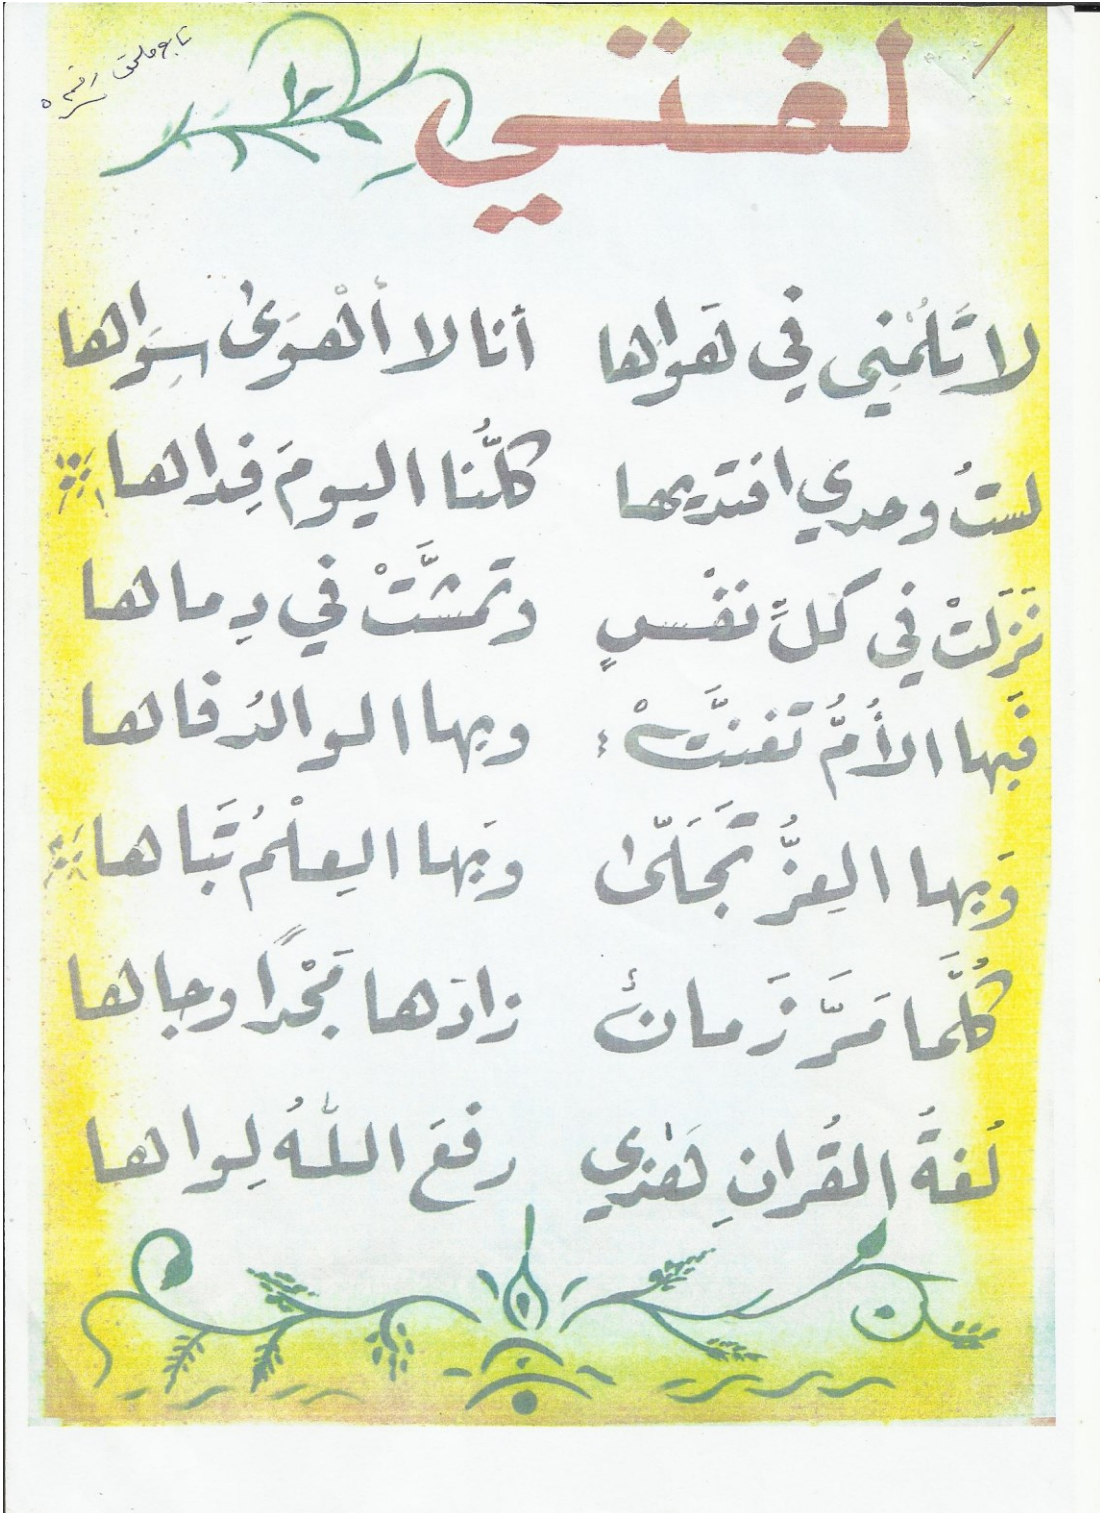 تابع ملحق رقم ٥
لغتي
لا تَلُمْنِي في هَواها أنا لا أهْوَى سِوَاها
لستُ وحدي افتديها كلُّنا اليومَ فِداها
نَزَلتْ في كلِّ نفْسٍ وتمشَّتْ في دِماها
فَبها الأُمُّ تغنَّتْ وبها الوالدُ فاها
وَبها العِزُّ تجَلَّى وَبها العِلْمُ تَباها
كُلَّما مَرَّ زَمانٌ زادَها مَجْدًا وجاها
لُغةُ القُرانِ هَذي رفعَ اللهُ لِواها